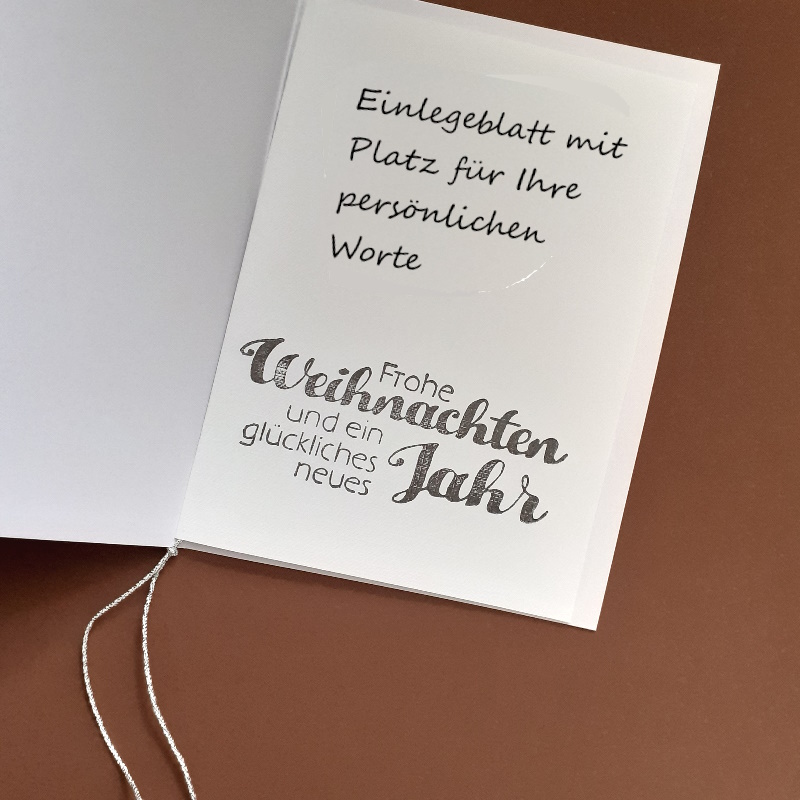 Einlegeblatt mit
Platz für Ihre
persönlichen
Worte
Frohe
Weihnachten
und ein
glückliches
neues
Jahr